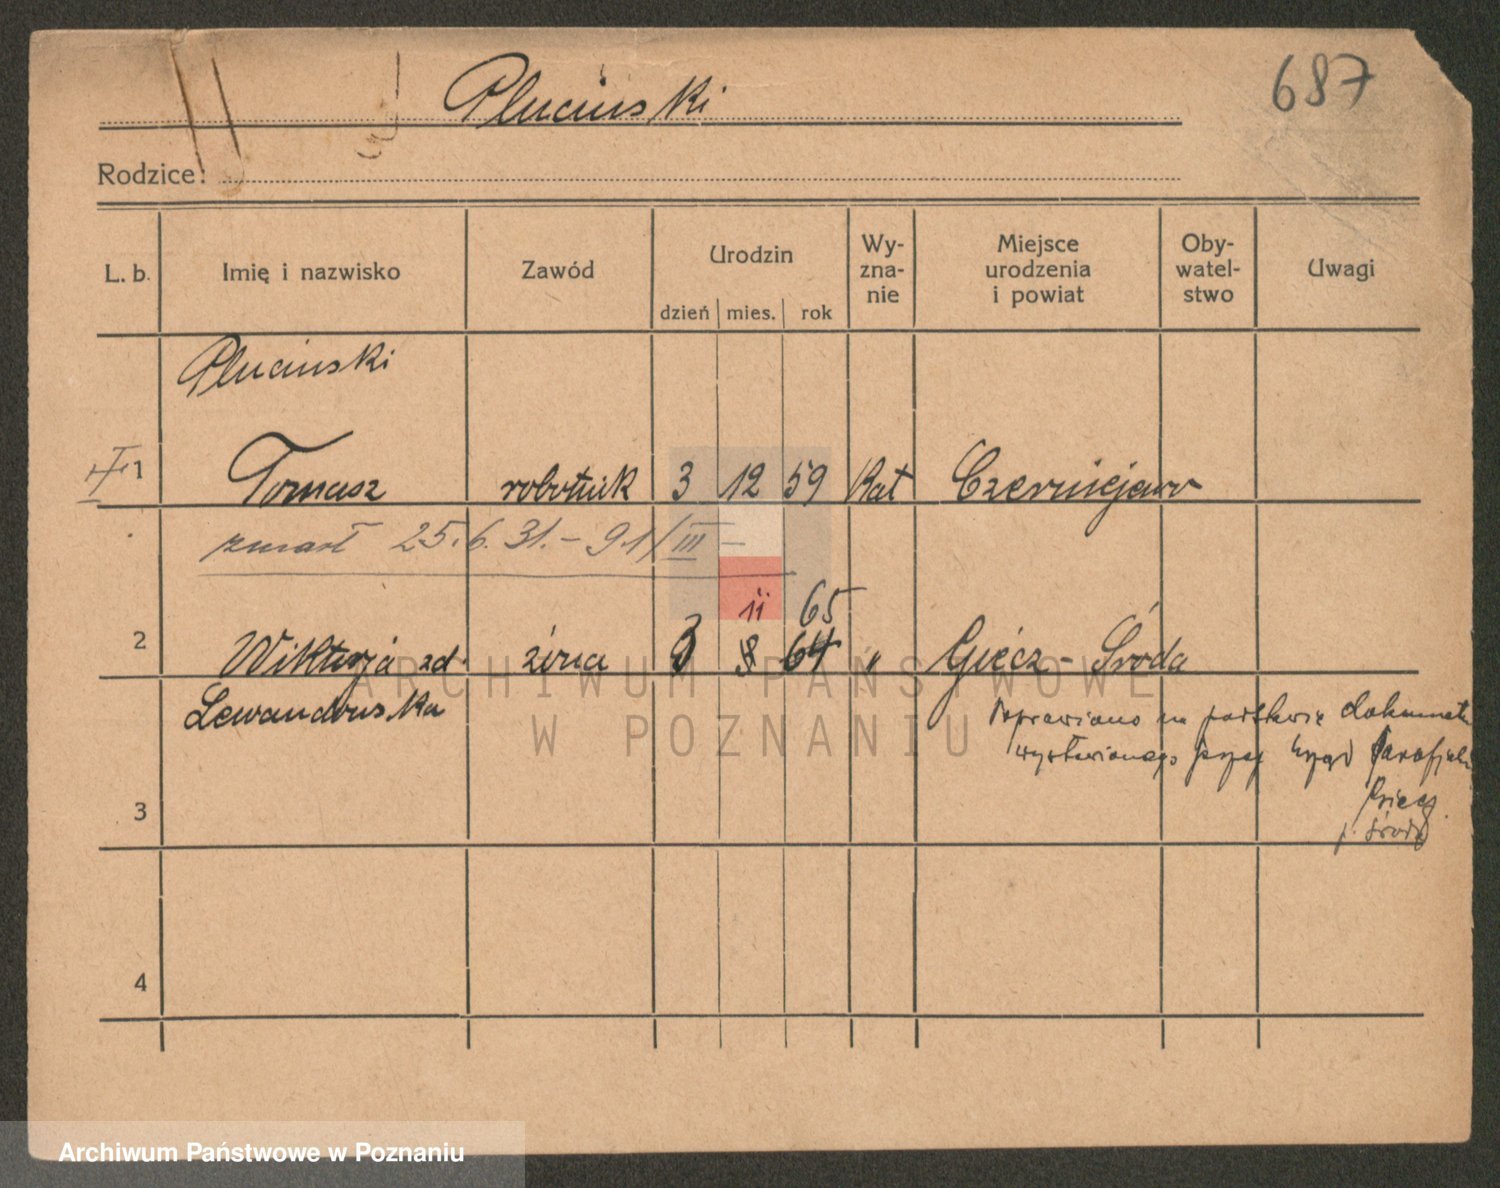 687
Pluciński
Rodzice:
L. b.
Imię i nazwisko
Zawód
Urodzin
dzień
mies.
rok
Wy-
zna-
nie
Miejsce
urodzenia
i powiat
Oby-
watel-
stwo
Uwagi
Pluciński
1
Tomasz
robotnik
3
12
59
Kat
Czerniejewo
zmarł 25.6.31. – 91/III –
11
65
2
Wiktorja zd.
żona
3
8
64
"
Giecz - Środa
Lewandowska
Poprawiono na podstawie dokumentu
wystawionego przez Urząd Parafjalny
Giecz
p. Środa
3
4
ARCHIWUM PAŃSTWOWE
W POZNANIU
Archiwum Państwowe w Poznaniu